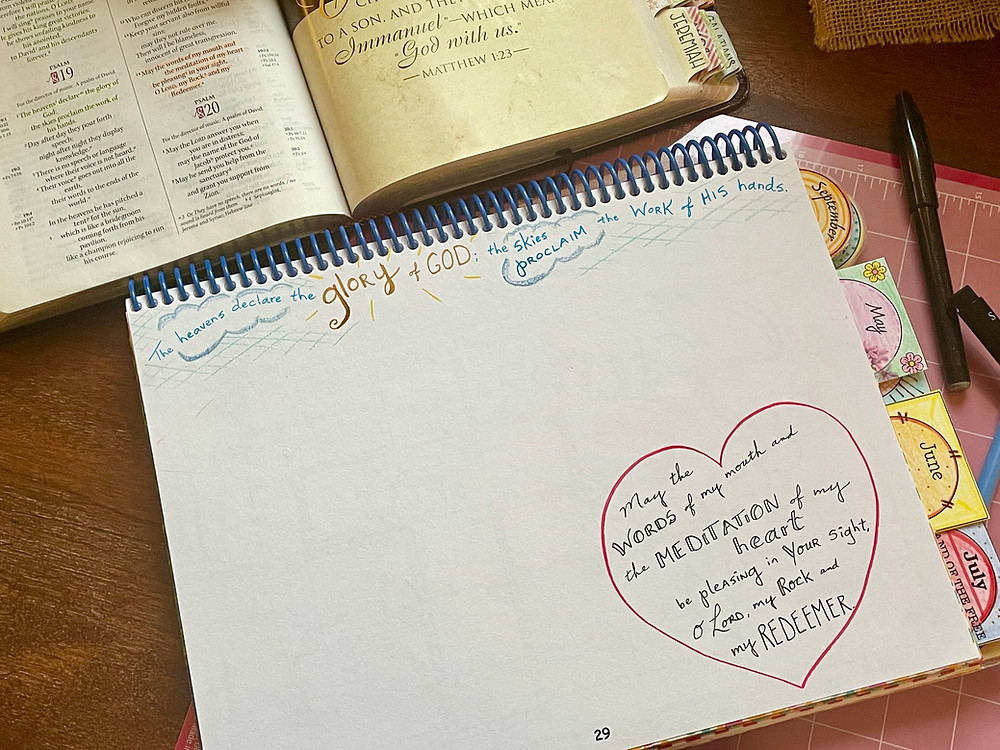 to David and his descendants
PSALM
19
For the director of music. A psalm of David.
The heavens declare the glory of
God;
the skies proclaim the work of
his hands.
Day after day they pour forth
speech;
night after night they display
knowledge.
There is no speech or language
where their voice is not heard.
Their voice goes out into all the
earth,
their words to the ends of the
world.
In the heavens he has pitched a
tent for the sun,
which is like a bridegroom
coming forth from his
pavilion,
like a champion rejoicing to run
his course.
Who can discern his errors?
Forgive my hidden faults.
Keep your servant also from willful
sins;
may they not rule over me.
Then will I be blameless,
innocent of great transgression.
May the words of my mouth and
the meditation of my heart
be pleasing in your sight,
O LORD, my Rock and my
Redeemer.
PSALM
20
For the director of music. A psalm of David.
May the LORD answer you when
you are in distress;
may the name of the God of
Jacob protect you.
May he send you help from the
sanctuary
and grant you support from
Zion.
TO A SON, AND THEY
Immanuel"—WHICH MEANS
"God with us."
—MATTHEW 1:23—
JEREMIAH
The heavens declare the glory of GOD; the skies PROCLAIM the WORK of HIS hands.
May the
WORDS of my mouth and
the MEDITATION of my
heart
be pleasing in Your sight,
O LORD, my Rock and
my REDEEMER.
29
September
May
June
July
LAND OF THE FREE